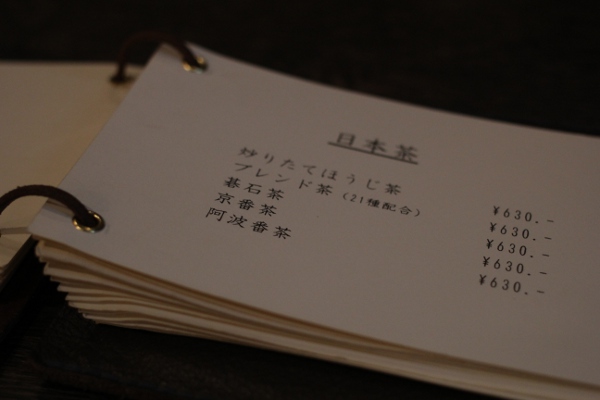 日本茶
炒りたてほうじ茶 ¥630.-
ブレンド茶(21種配合) ¥630.-
碁石茶 ¥630.-
京番茶 ¥630.-
阿波番茶 ¥630.-